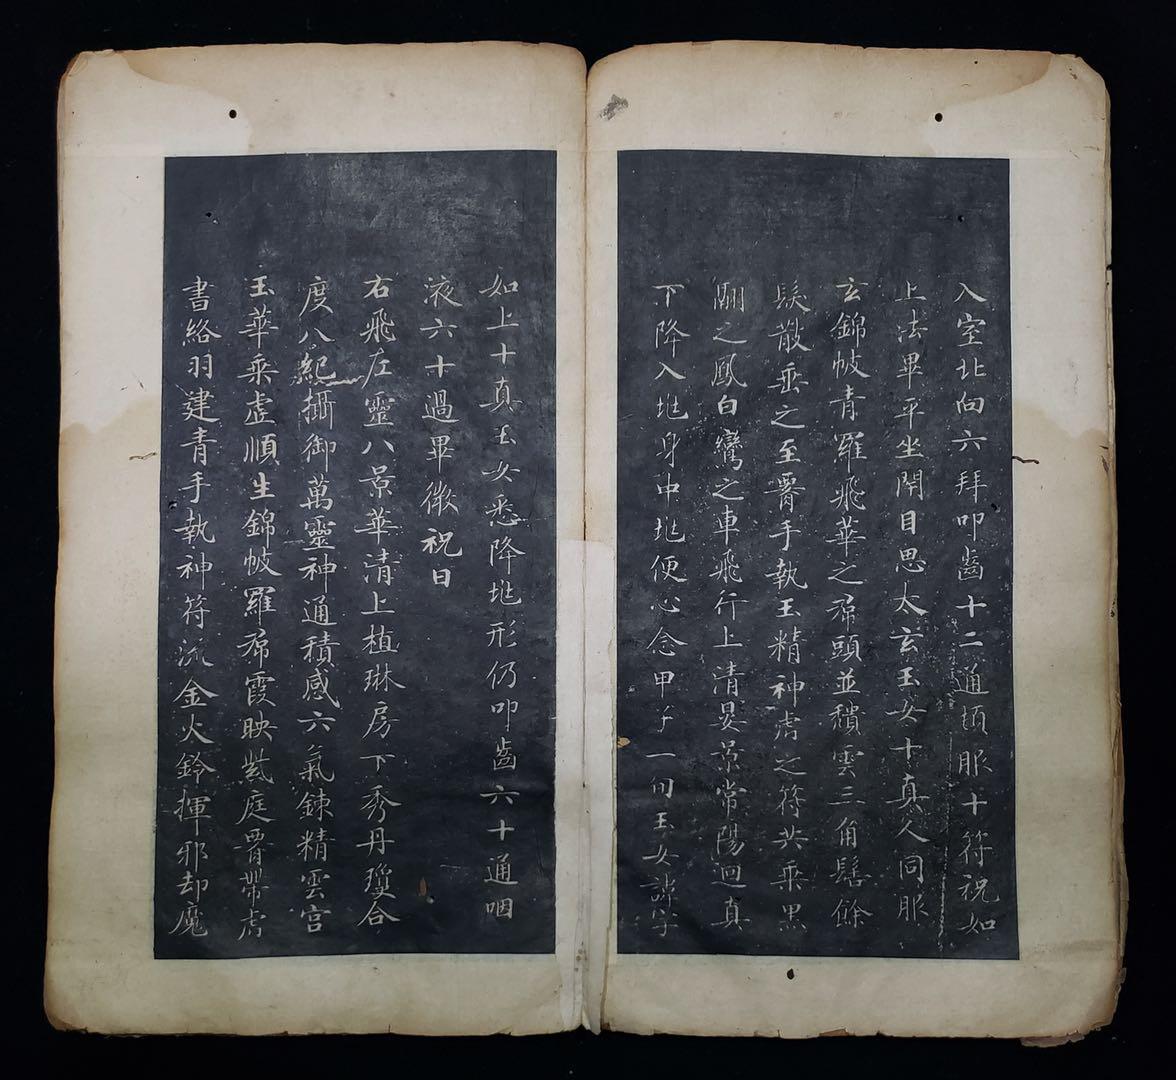 入室北向六拜叩齒十二通頓服十符祝如
上法畢平坐閇目思太玄玉女十真人同服
玄錦帔青羅飛華之帬頭並穨雲三角髻餘
髮散垂之至𦝫手執玉精神虎之符共乘黒
翮之鳳白鸞之車飛行上清晏景常陽迴真
下降入地身中地便心念甲子一旬玉女諱字
如上十真玉女悉降地形仍叩齒六十通咽
液六十過畢微祝曰
右飛左靈八景華清上植琳房下秀丹瓊合
度八紀攝御萬靈神通積感六氣鍊精雲宫
玉華乘虛順生錦帔羅帬霞映紫庭𦝫帶虎
書絡羽建青手執神符流金火鈴揮邪却魔